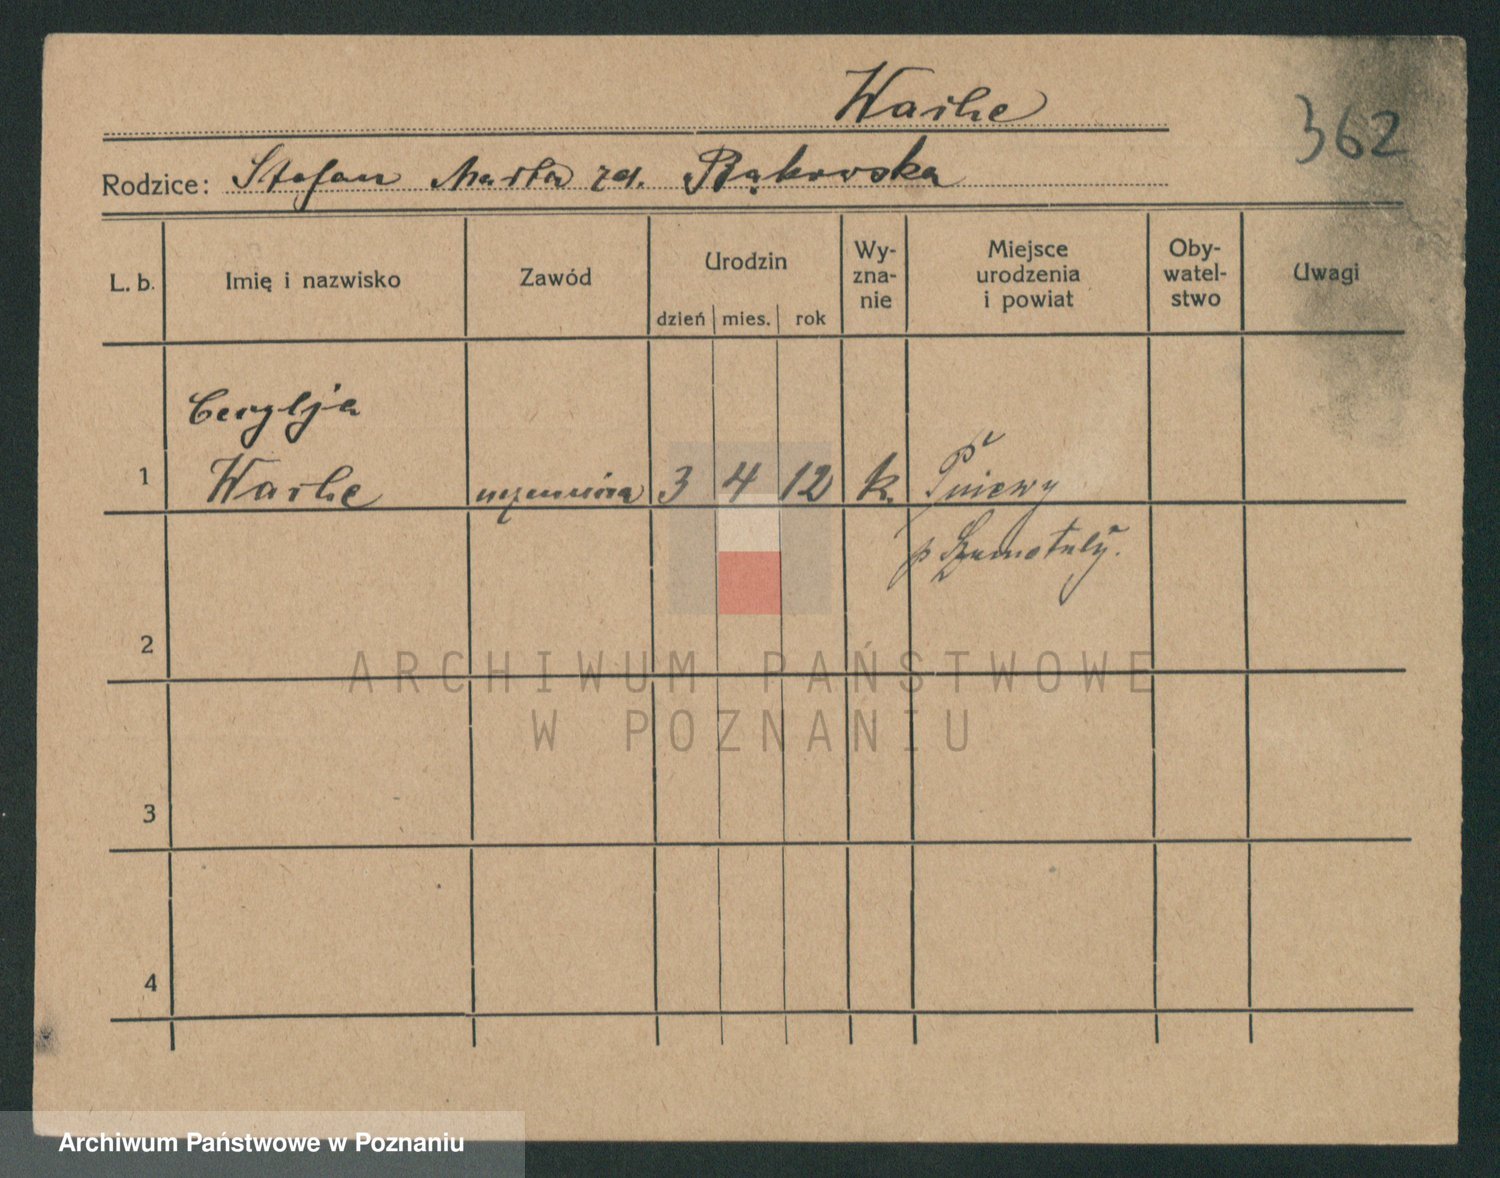 Warhe
362
Rodzice: Stefan Marta zd. Bąkowska
L. b.
Imię i nazwisko
Zawód
Urodzin
dzień mies. rok
Wy-
zna-
nie
Miejsce
urodzenia
i powiat
Oby-
watel-
stwo
Uwagi
Cecylja
1 Warhe uczennica 3 4 12 k. Pniewy
p Szamotuły.
2
3
4
ARCHIWUM PAŃSTWOWE
W POZNANIU
Archiwum Państwowe w Poznaniu